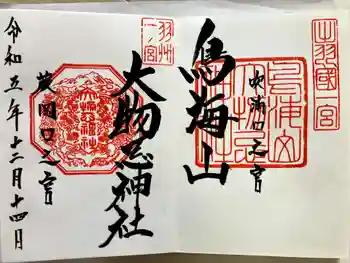 出羽國一宮
吹浦口之宮
鳥海山
羽州一ノ宮
大物忌神社
大物忌神社
蕨岡口之宮
令和五年十二月十四日